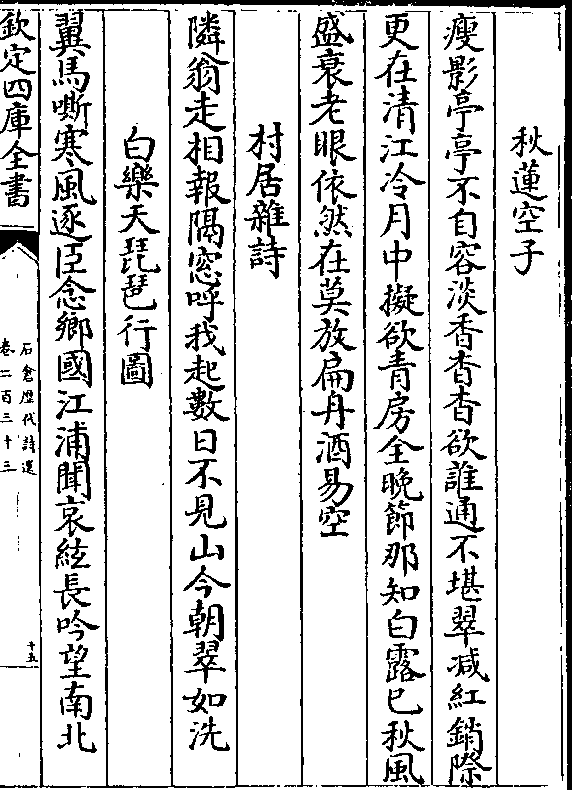 秋蓮空子
瘦影亭亭不自容淡香杳杳欲誰通不堪翠减紅銷際
更在清江冷月中擬欲青房全晚節那知白露已秋風
盛衰老眼依然在莫放扁舟酒易空
村居雜詩
隣翁走相報隔窓呼我起數日不見山今朝翠如洗
白樂天琵琶行圖
翼馬嘶寒風逐臣念鄉國江浦聞哀絃長吟望南北
欽定四庫全書
石倉歴代詩選
卷二百三十三
十五